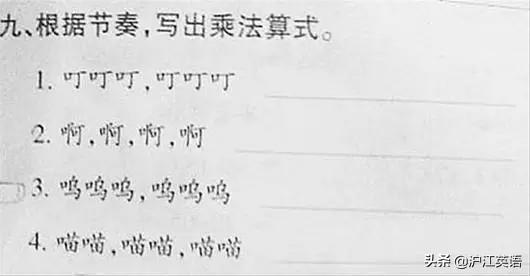 九、根据节奏,写出乘法算式。
1. 叮叮叮,叮叮叮
2. 啊,啊,啊,啊
3. 呜呜呜,呜呜呜
4. 喵喵,喵喵,喵喵
头条 @沪江英语